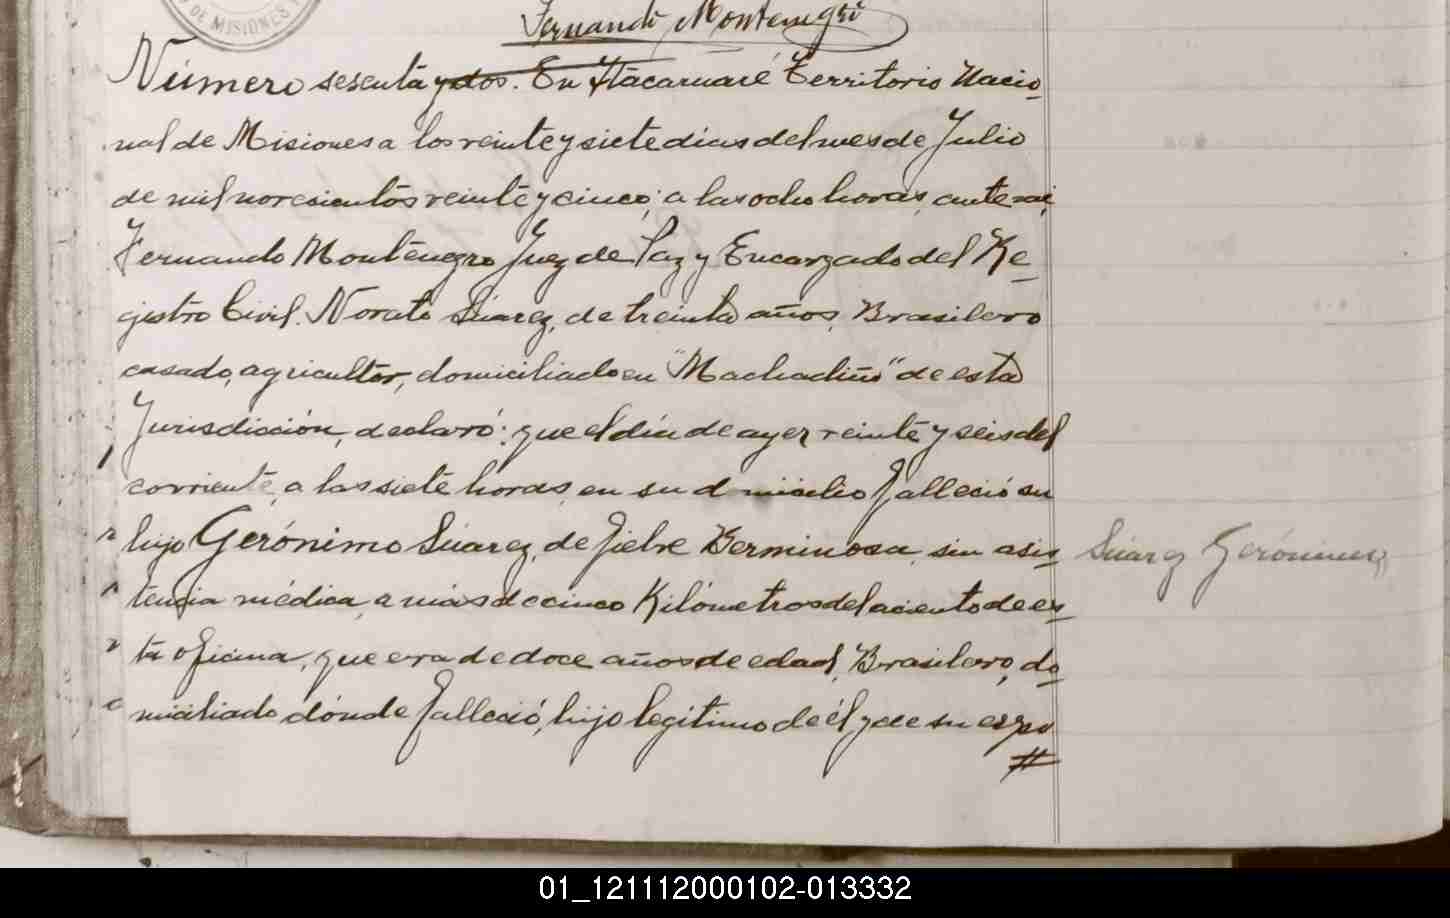 DE MISIONES
Fernando Montenegro
Número sesenta y dos. En Itacaruaré Territorio Nacio-
nal de Misiones a los veinte y siete dias del mes de Julio
de mil novecientos veinte y cinco, a las ocho horas, ante mi,
Fernando Montenegro Juez de Paz y Encargado del Re-
gistro Civil. Norato Súarez, de treinta años, Brasilero
casado, agricultor, domiciliado en "Machadiño" de esta
Jurisdicción, declaró: que el día de ayer veinte y seis del
corriente, a las siete horas, en su domicilio falleció su
hijo Gerónimo Súarez, de fiebre Berminosa, sin asis-
tencia médica, a más de cinco Kilómetros del aciento de es-
ta oficina, que era de doce años de edad, Brasilero, do-
miciliado dónde falleció, hijo legítimo de él y de su espo
#
Súarez Gerónimo
01_121112000102-013332